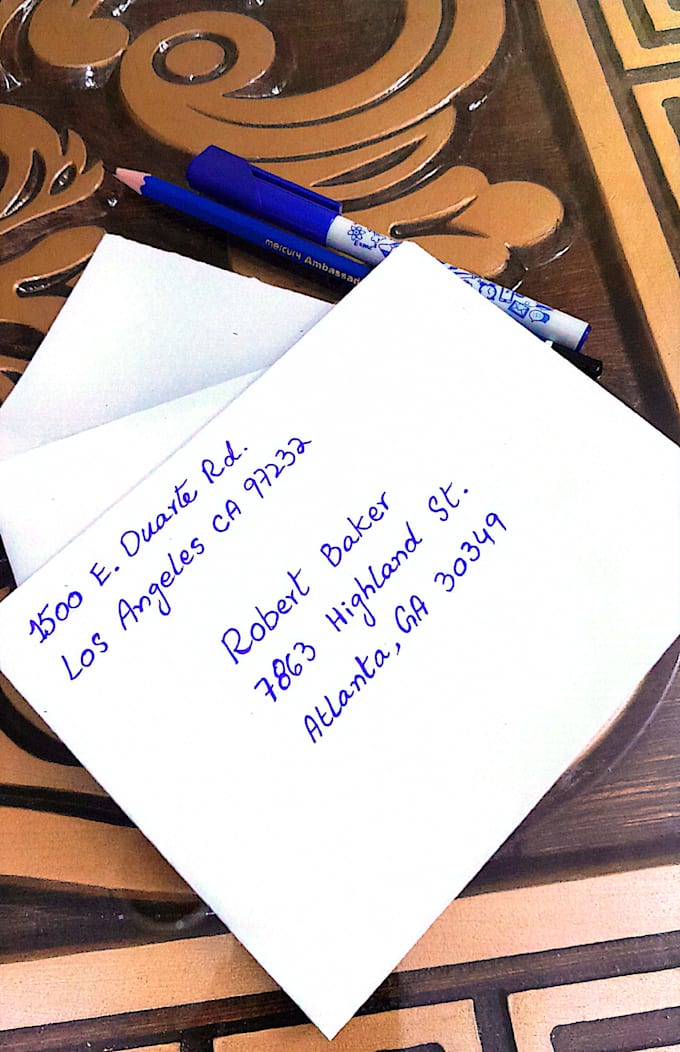 mercury Ambassad
1500 E. Duarte Rd.
Los Angeles CA 97232
Robert Baker
7863 Highland St.
Atlanta, GA 30349